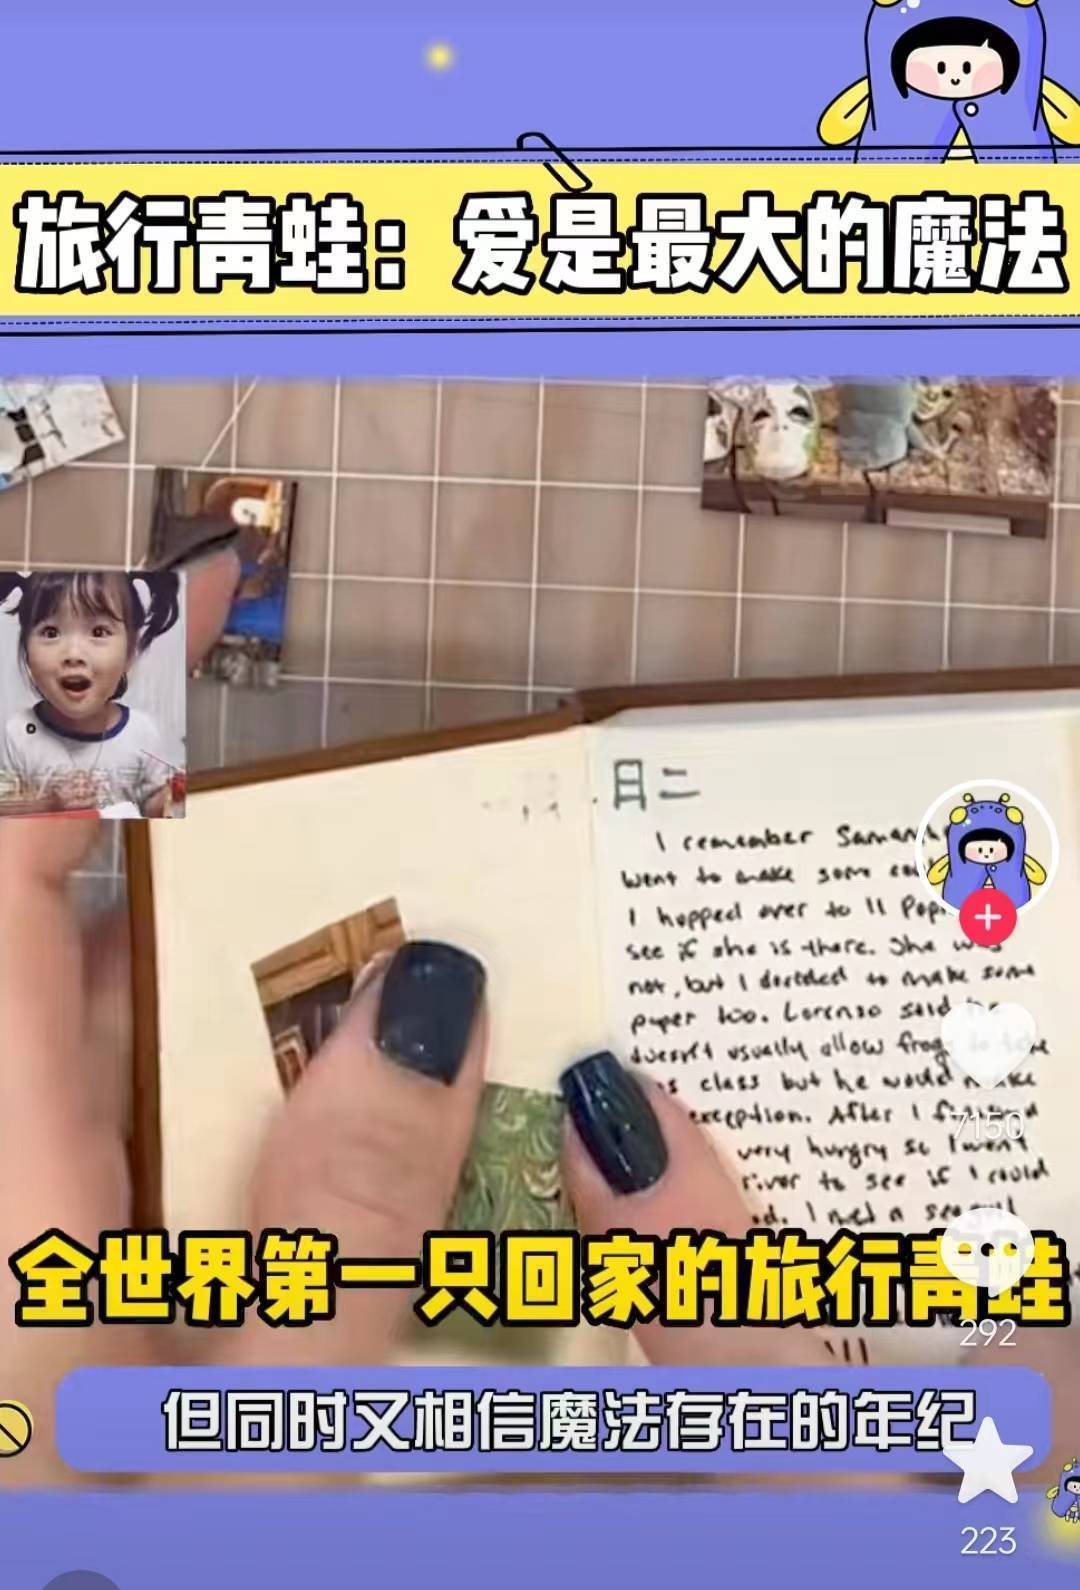 旅行青蛙：爱是最大的魔法
日二
I remember
went to make some
I hopped over to Il
see if she is there. She was
not, but I decided to make some
paper too. Lorenzo said he
doesn't usually allow frogs to take
class but he would make
exception. After I finished
very hungry so I went
river to see if I could
I met a seagull
全世界第一只回家的旅行青蛙
但同时又相信魔法存在的年纪
7150
292
223